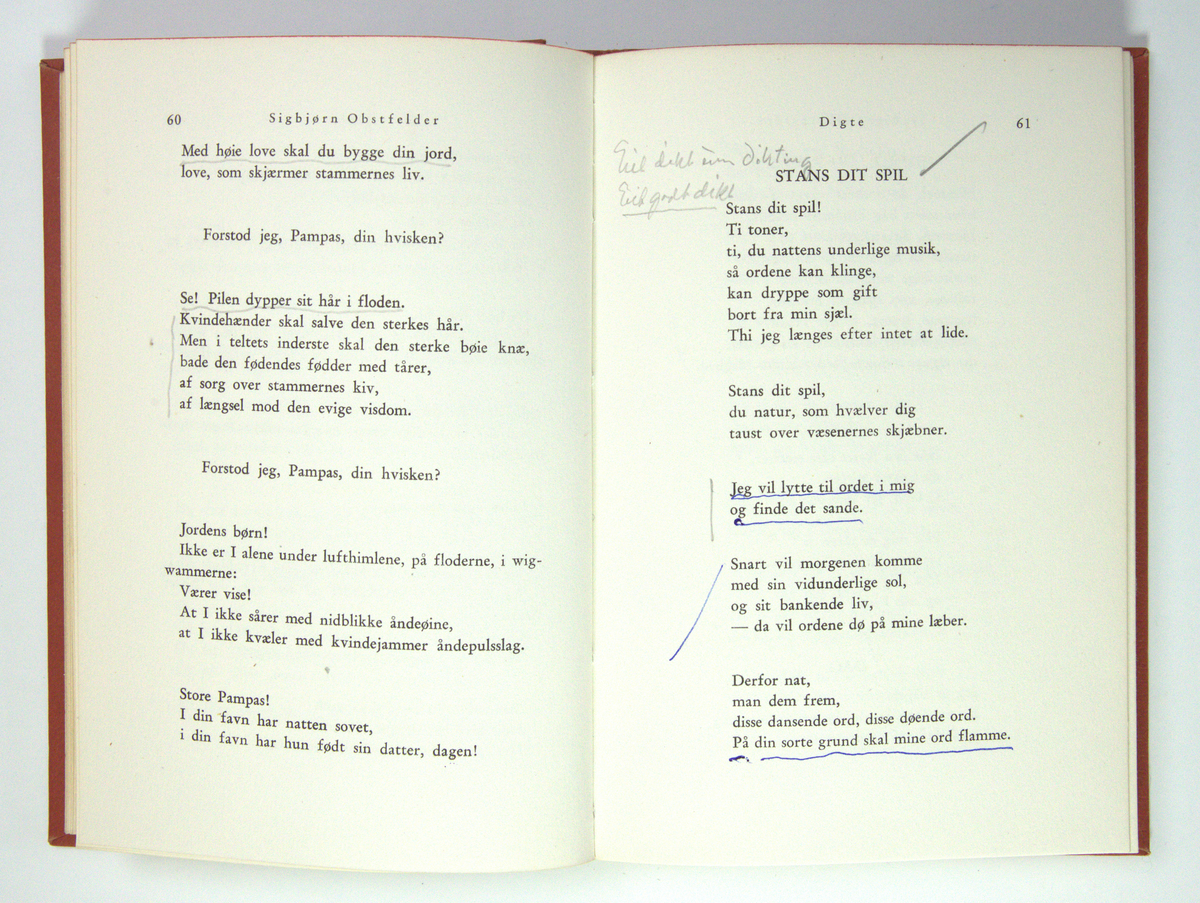 60
Sigbjørn Obstfelder
Med høie love skal du bygge din jord,
love, som skjærmer stammernes liv.
Forstod jeg, Pampas, din hvisken?
Se! Pilen dypper sit hår i floden.
Kvindehænder skal salve den sterkes hår.
Men i teltets inderste skal den sterke bøie knæ,
bade den fødendes fødder med tårer,
af sorg over stammernes kiv,
af længsel mod den evige visdom.
Forstod jeg, Pampas, din hvisken?
Jordens børn!
Ikke er I alene under lufthimlene, på floderne, i wig-
wammerne:
Værer vise!
At I ikke sårer med nidblikke åndeøine,
at I ikke kvæler med kvindejammer åndepulsslag.
Store Pampas!
I din favn har natten sovet,
i din favn har hun født sin datter, dagen!
Digte
61
Eit dikt um Dikting
Eit godt dikt
STANS DIT SPIL
Stans dit spil!
Ti toner,
ti, du nattens underlige musik,
så ordene kan klinge,
kan dryppe som gift
bort fra min sjæl.
Thi jeg længes efter intet at lide.
Stans dit spil,
du natur, som hvælver dig
taust over væsenernes skjæbner.
Jeg vil lytte til ordet i mig
og finde det sande.
Snart vil morgenen komme
med sin vidunderlige sol,
og sit bankende liv,
— da vil ordene dø på mine læber.
Derfor nat,
man dem frem,
disse dansende ord, disse døende ord.
På din sorte grund skal mine ord flamme.